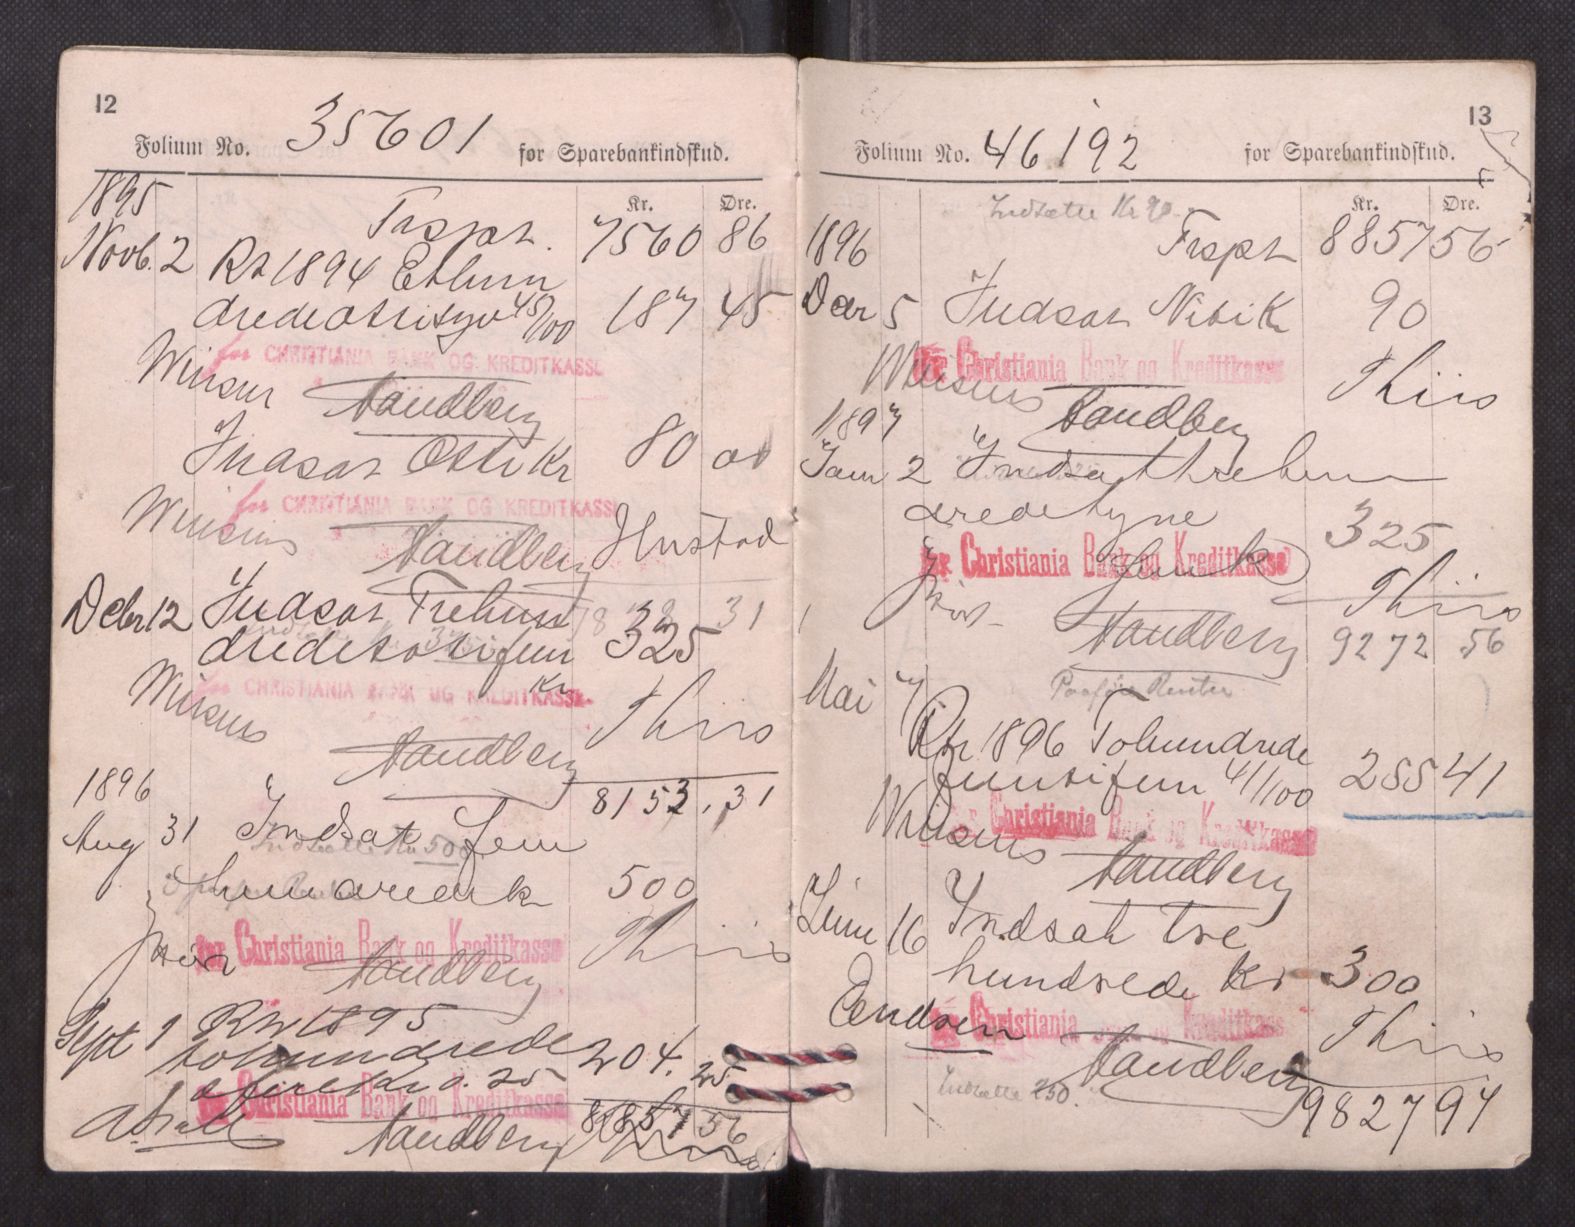 12
35601
Folium No. for Sparebankindskud.
Kr. Øre.
1895
Trspt. 7560 86
Novb. 2 Rt 1894 Ethun
dredeotsityv 45/100 187 45
for CHRISTIANIA BANK OG KREDITKASSE
Sandberg
Indsat Otti Kr 80 00
for CHRISTIANIA BANK OG KREDITKASSE
Sandberg Hustad
Debr 12 Indsat Trehun 31
dredetotifem 325
Kr
for CHRISTIANIA BANK OG KREDITKASSE
Thiis
Sandberg
1896 8153.31
Aug 31 Indsat fem
Indsætte Kr 500
hundrede k 500
for Christiania Bank og Kreditkasse
Thiis
Sandberg
Sept 1 Rtr 1895
tohundrede 204.25
fire Kr 0.25
for Christiania Bank og Kreditkasse
Sandberg 8857 56
13
Folium No. 46192 for Sparebankindskud.
Indsætte Kr 90.
Kr. Øre.
1896 Trspt 8857 56
Debr 5 Indsat Niti Kr 90
for Christiania Bank og Kreditkasse
Thiis
Sandberg
1897
Jan 2 Indsat trehun
dredetyve 325
for Christiania Bank og Kreditkasse
Thiis
Sandberg 9272 56
Mai 7 Paaføre Renter
Rtr 1896 Tohundrede
femtifem 41/100 255 41
for Christiania Bank og Kreditkasse
Sandberg
Juni 16 Indsat tre
hundrede Kr 300
for Christiania Bank og Kreditkasse
Thiis
Sandberg
Indsætte 250.
9827 97